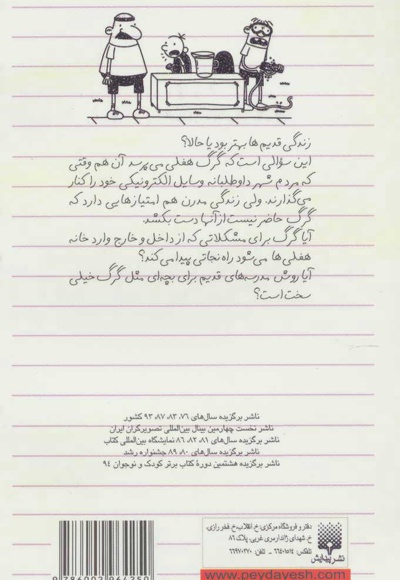 زندگی قدیم ها بهتر بود یا حالا؟
این سؤالی است که گرگ هفلی می پرسد آن هم وقتی
که مردم شهر داوطلبانه وسایل الکترونیکی خود را کنار
می‌گذارند. ولی زندگی مدرن هم امتیازهایی دارد که
گرگ حاضر نیست از آنها دست بکشد.
آیا گرگ برای مشکلاتی که از داخل و خارج وارد خانه
هفلی ها می‌شود راه نجاتی پیدا می کند؟
آیا روش مدرسه‌های قدیم برای بچه‌ای مثل گرگ خیلی
سخت است؟
ناشر برگزیده سال‌های ۷۶، ۸۳، ۸۷، ۹۳ کشور
ناشر نخست چهارمین بینال بین‌المللی تصویرگران ایران
ناشر برگزیده سال‌های ۸۱، ۸۲، ۸۶ نمایشگاه بین‌المللی کتاب
ناشر برگزیده سال‌های ۸۰، ۸۹ جشنواره رشد
ناشر برگزیده هشتمین دورهٔ کتاب برتر کودک و نوجوان ۹۴
دفتر و فروشگاه مرکزی: خ انقلاب، خ فخررازی،
خ شهدای ژاندارمری غربی، پلاک ۸۶
تلفکس: ۶۶۴۰۱۵۱۴ - تلفن: ۶۶۹۷۰۲۷۰
نشر پیدایش
www.peydayesh.com